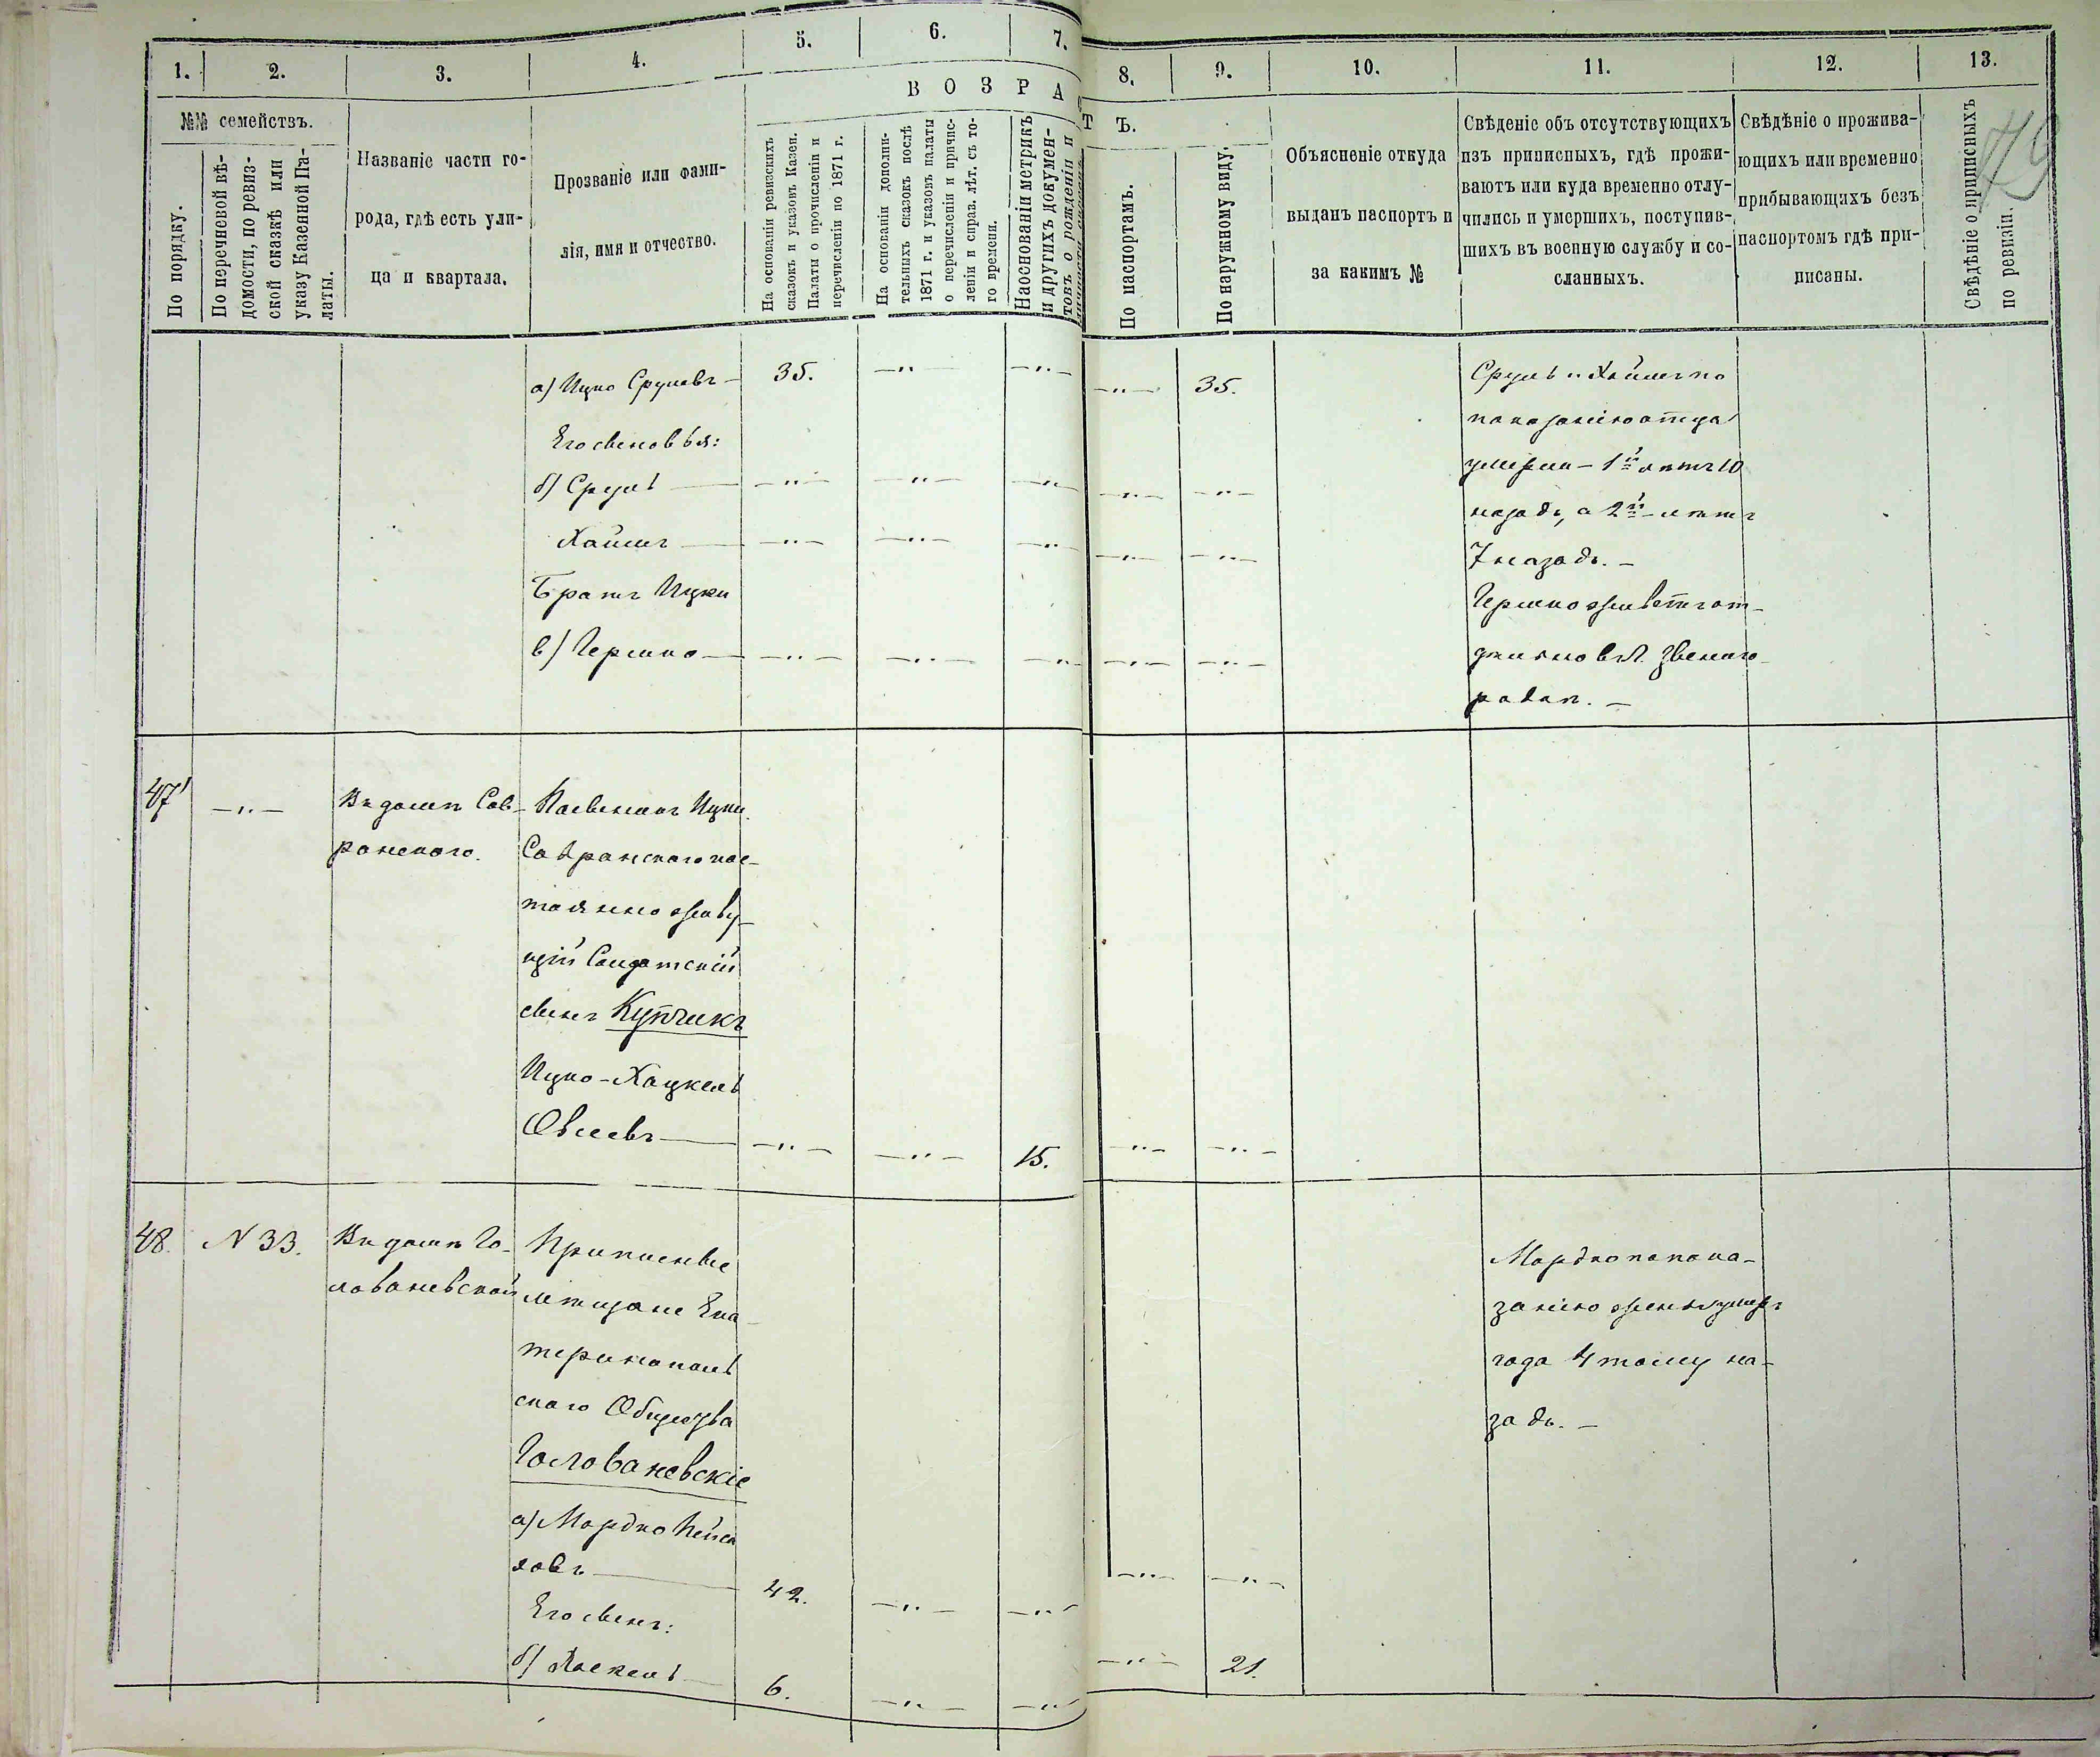 1. 2. 3. 4. 5. 6. 7. 8. 9. 10. 11. 12. 13.
В О З Р А С Т Ъ.
№№ семействъ.
По порядку.
По перечневой вѣ-
домости, по ревиз-
ской сказкѣ или
указу Казенной Па-
латы.
Названіе части го-
рода, гдѣ есть ули-
ца и квартала.
Прозваніе или фами-
лія, имя и отчество.
На основаніи ревизскихъ
сказокъ и указовъ Казен.
Палаты о прочисленіи и
перечисленіи по 1871 г.
На основаніи дополни-
тельныхъ сказокъ послѣ
1871 г. и указовъ палаты
о перечисленіи и причис-
леніи и справ. лѣт. съ то-
го времени.
На основаніи метрикъ
и другихъ докумен-
товъ о рожденіи и
По паспортамъ.
По наружному виду.
Объясненіе откуда
выданъ паспортъ и
за какимъ №
Свѣденіе объ отсутствующихъ
изъ приписныхъ, гдѣ прожи-
ваютъ или куда временно отлу-
чились и умершихъ, поступив-
шихъ въ военную службу и со-
сланныхъ.
Свѣдѣніе о прожива-
ющихъ или временно
прибывающихъ безъ
паспортомъ гдѣ при-
писаны.
Свѣдѣніе о приписныхъ
по ревизіи.
а) Ицко Срулевъ — 35. —"— —"— —"— 35.
Его сыновья:
б) Сруль — —"— —"— —"— —"— —"—
Хаимъ — —"— —"— —"— —"— —"—
Братъ Ицки
в) Гершко — —"— —"— —"— —"— —"—
Сруль и Хаимъ по
показанію отца
умерли — 1й лѣтъ 10
назадъ, а 2й — лѣтъ
7 назадъ. —
Гершко живетъ от-
дѣльно в м. Звениго-
родкѣ. —
47 —"— Въ домѣ Сав-
ранскаго.
Пасынокъ Ицки
Савранскаго пос-
тоянно живу-
щій Солдатскій
сынъ Купчикъ
Ицко-Хацкель
Овсеевъ — —"— —"— 15. —"— —"—
48. N 33. Въ домѣ Го-
лованевской
Приписные
мѣщане Ека-
теринополь
скаго Общества
Голованевскіе
а) Мордко Пейса
ховъ — 42. —"— —"— —"— —"—
Его сынъ:
б) — 6. —"— —"— —"— 21.
Мордко по пока-
занію жены умеръ
года 4 тому на-
задъ. —